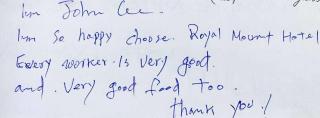 I'm John Lee.
I'm So happy choose. Royal Mount Hotel
Every worker. Is very good.
and. Very good food too.
thank you!